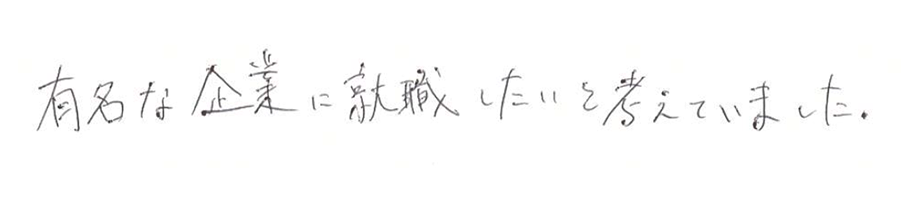 有名な企業に就職したいと考えていました.